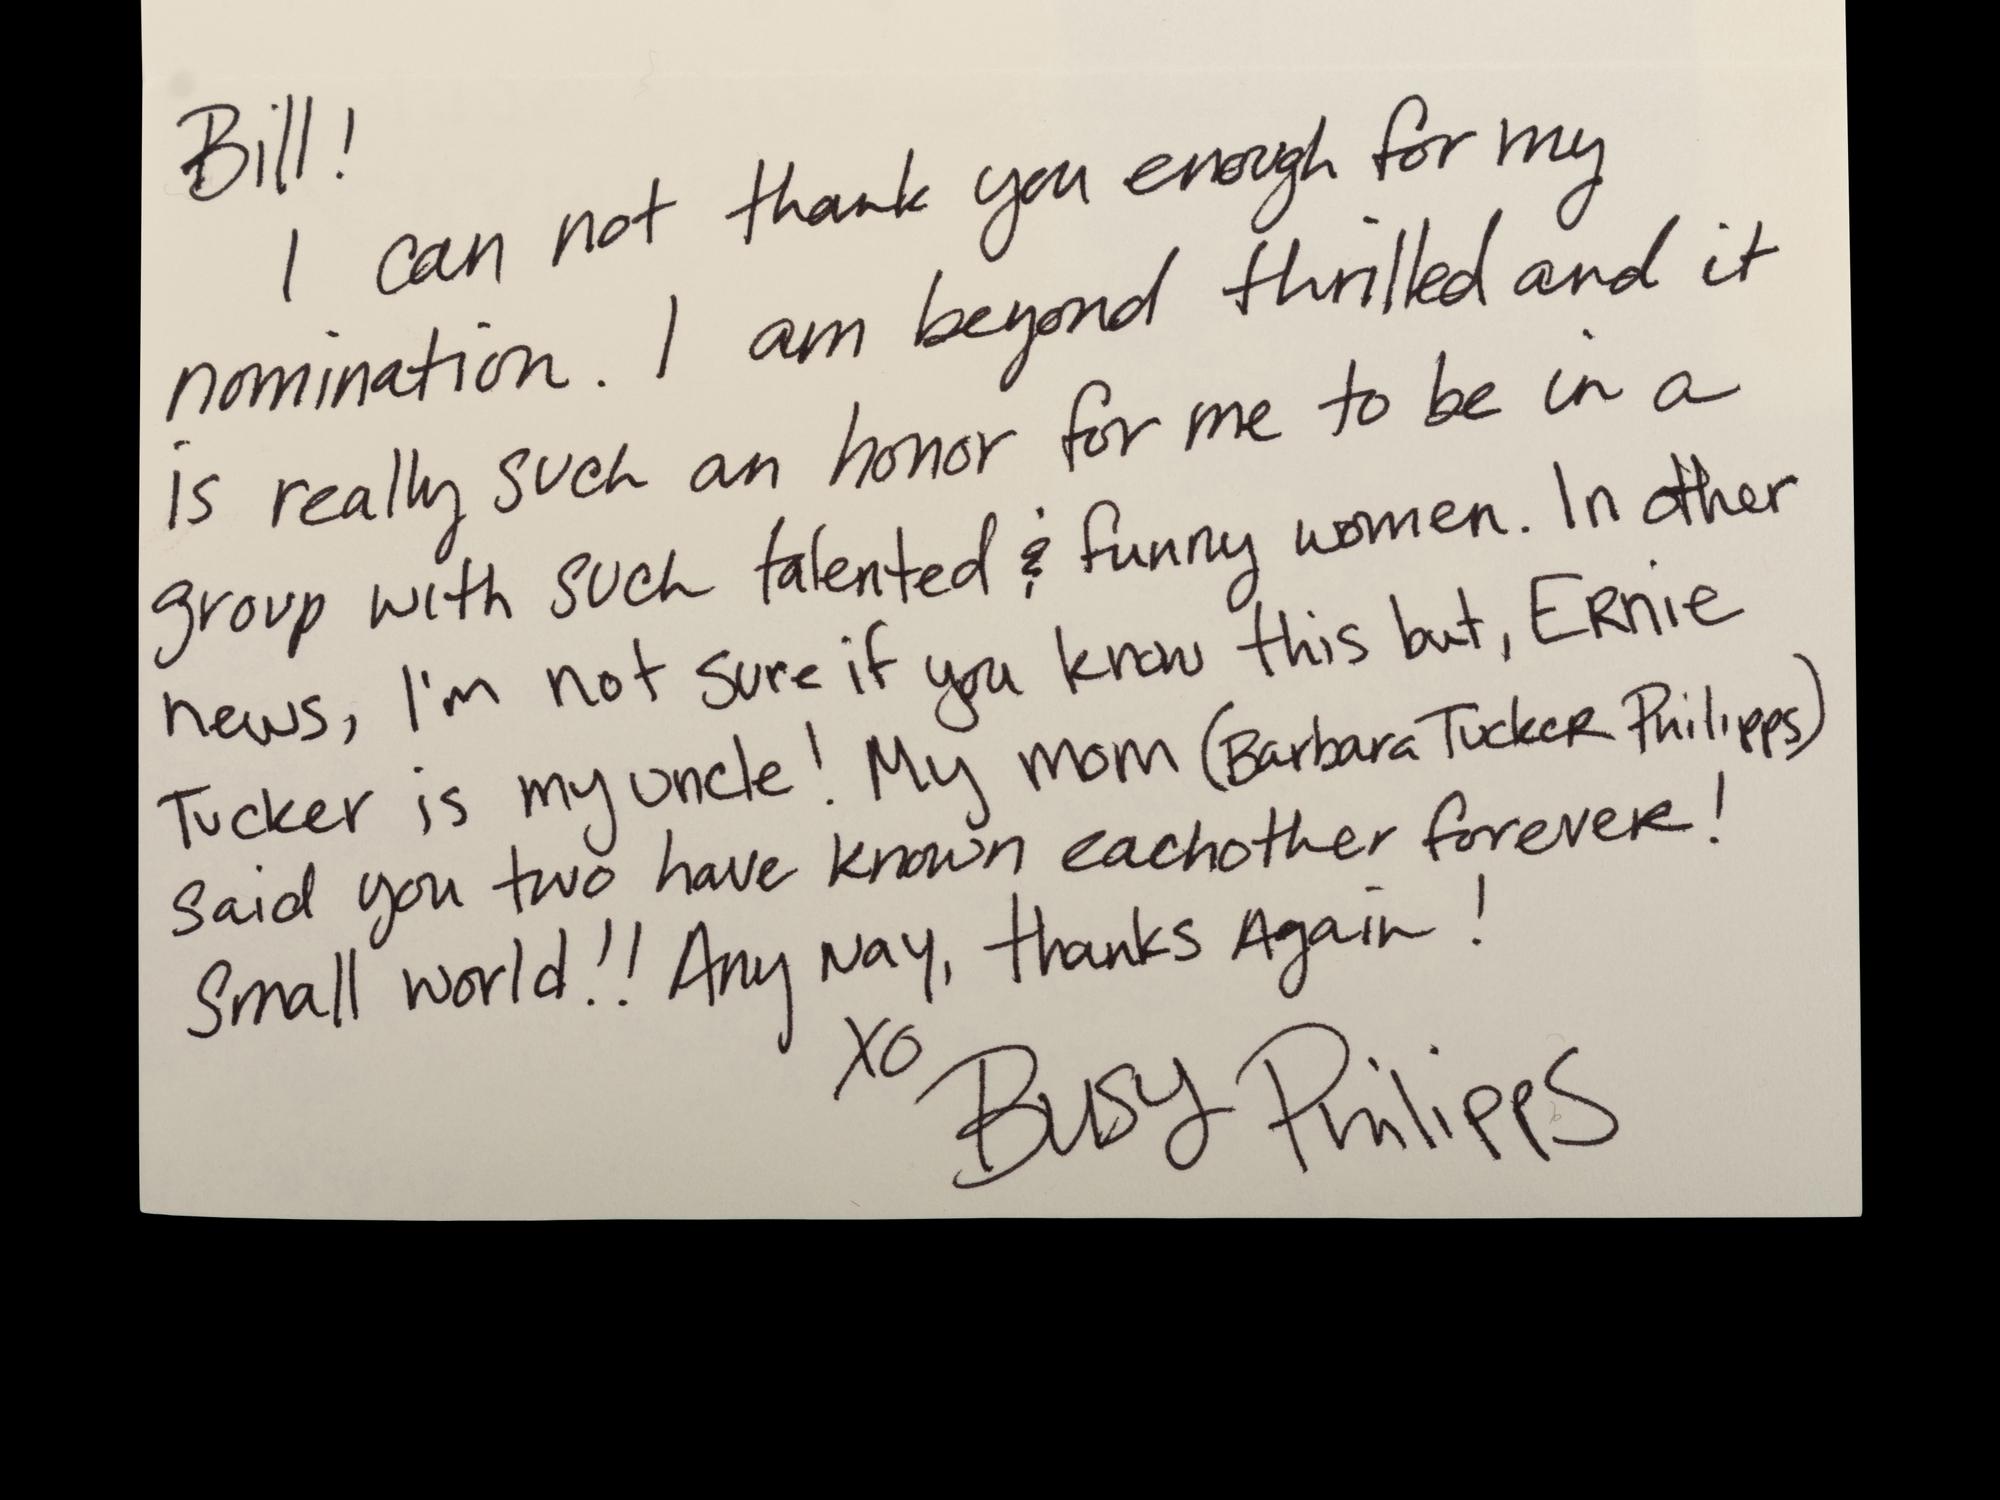 Bill!
I can not thank you enough for my
nomination. I am beyond thrilled and it
is really such an honor for me to be in a
group with such talented & funny women. In other
news, I'm not sure if you know this but, Ernie
Tucker is my uncle! My mom (Barbara Tucker Philipps)
said you two have known eachother forever!
Small world!! Any way, thanks Again!
XO
Busy Philipps